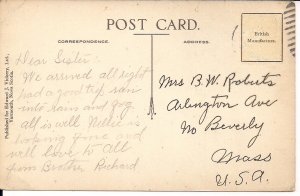 POST CARD.
CORRESPONDENCE.
ADDRESS.
British
Manufacture.
Published for Edward J. Vickery, Ltd.,
Yarmouth, Nova Scotia.
Dear Sister:
We arrived all right
had a good trip ran
into rain and fog
all is well Nellie is
looking fine and
well love to All
from Brother Richard
Mrs B. W. Roberts
Arlington Ave
No Beverly
Mass
U.S.A.